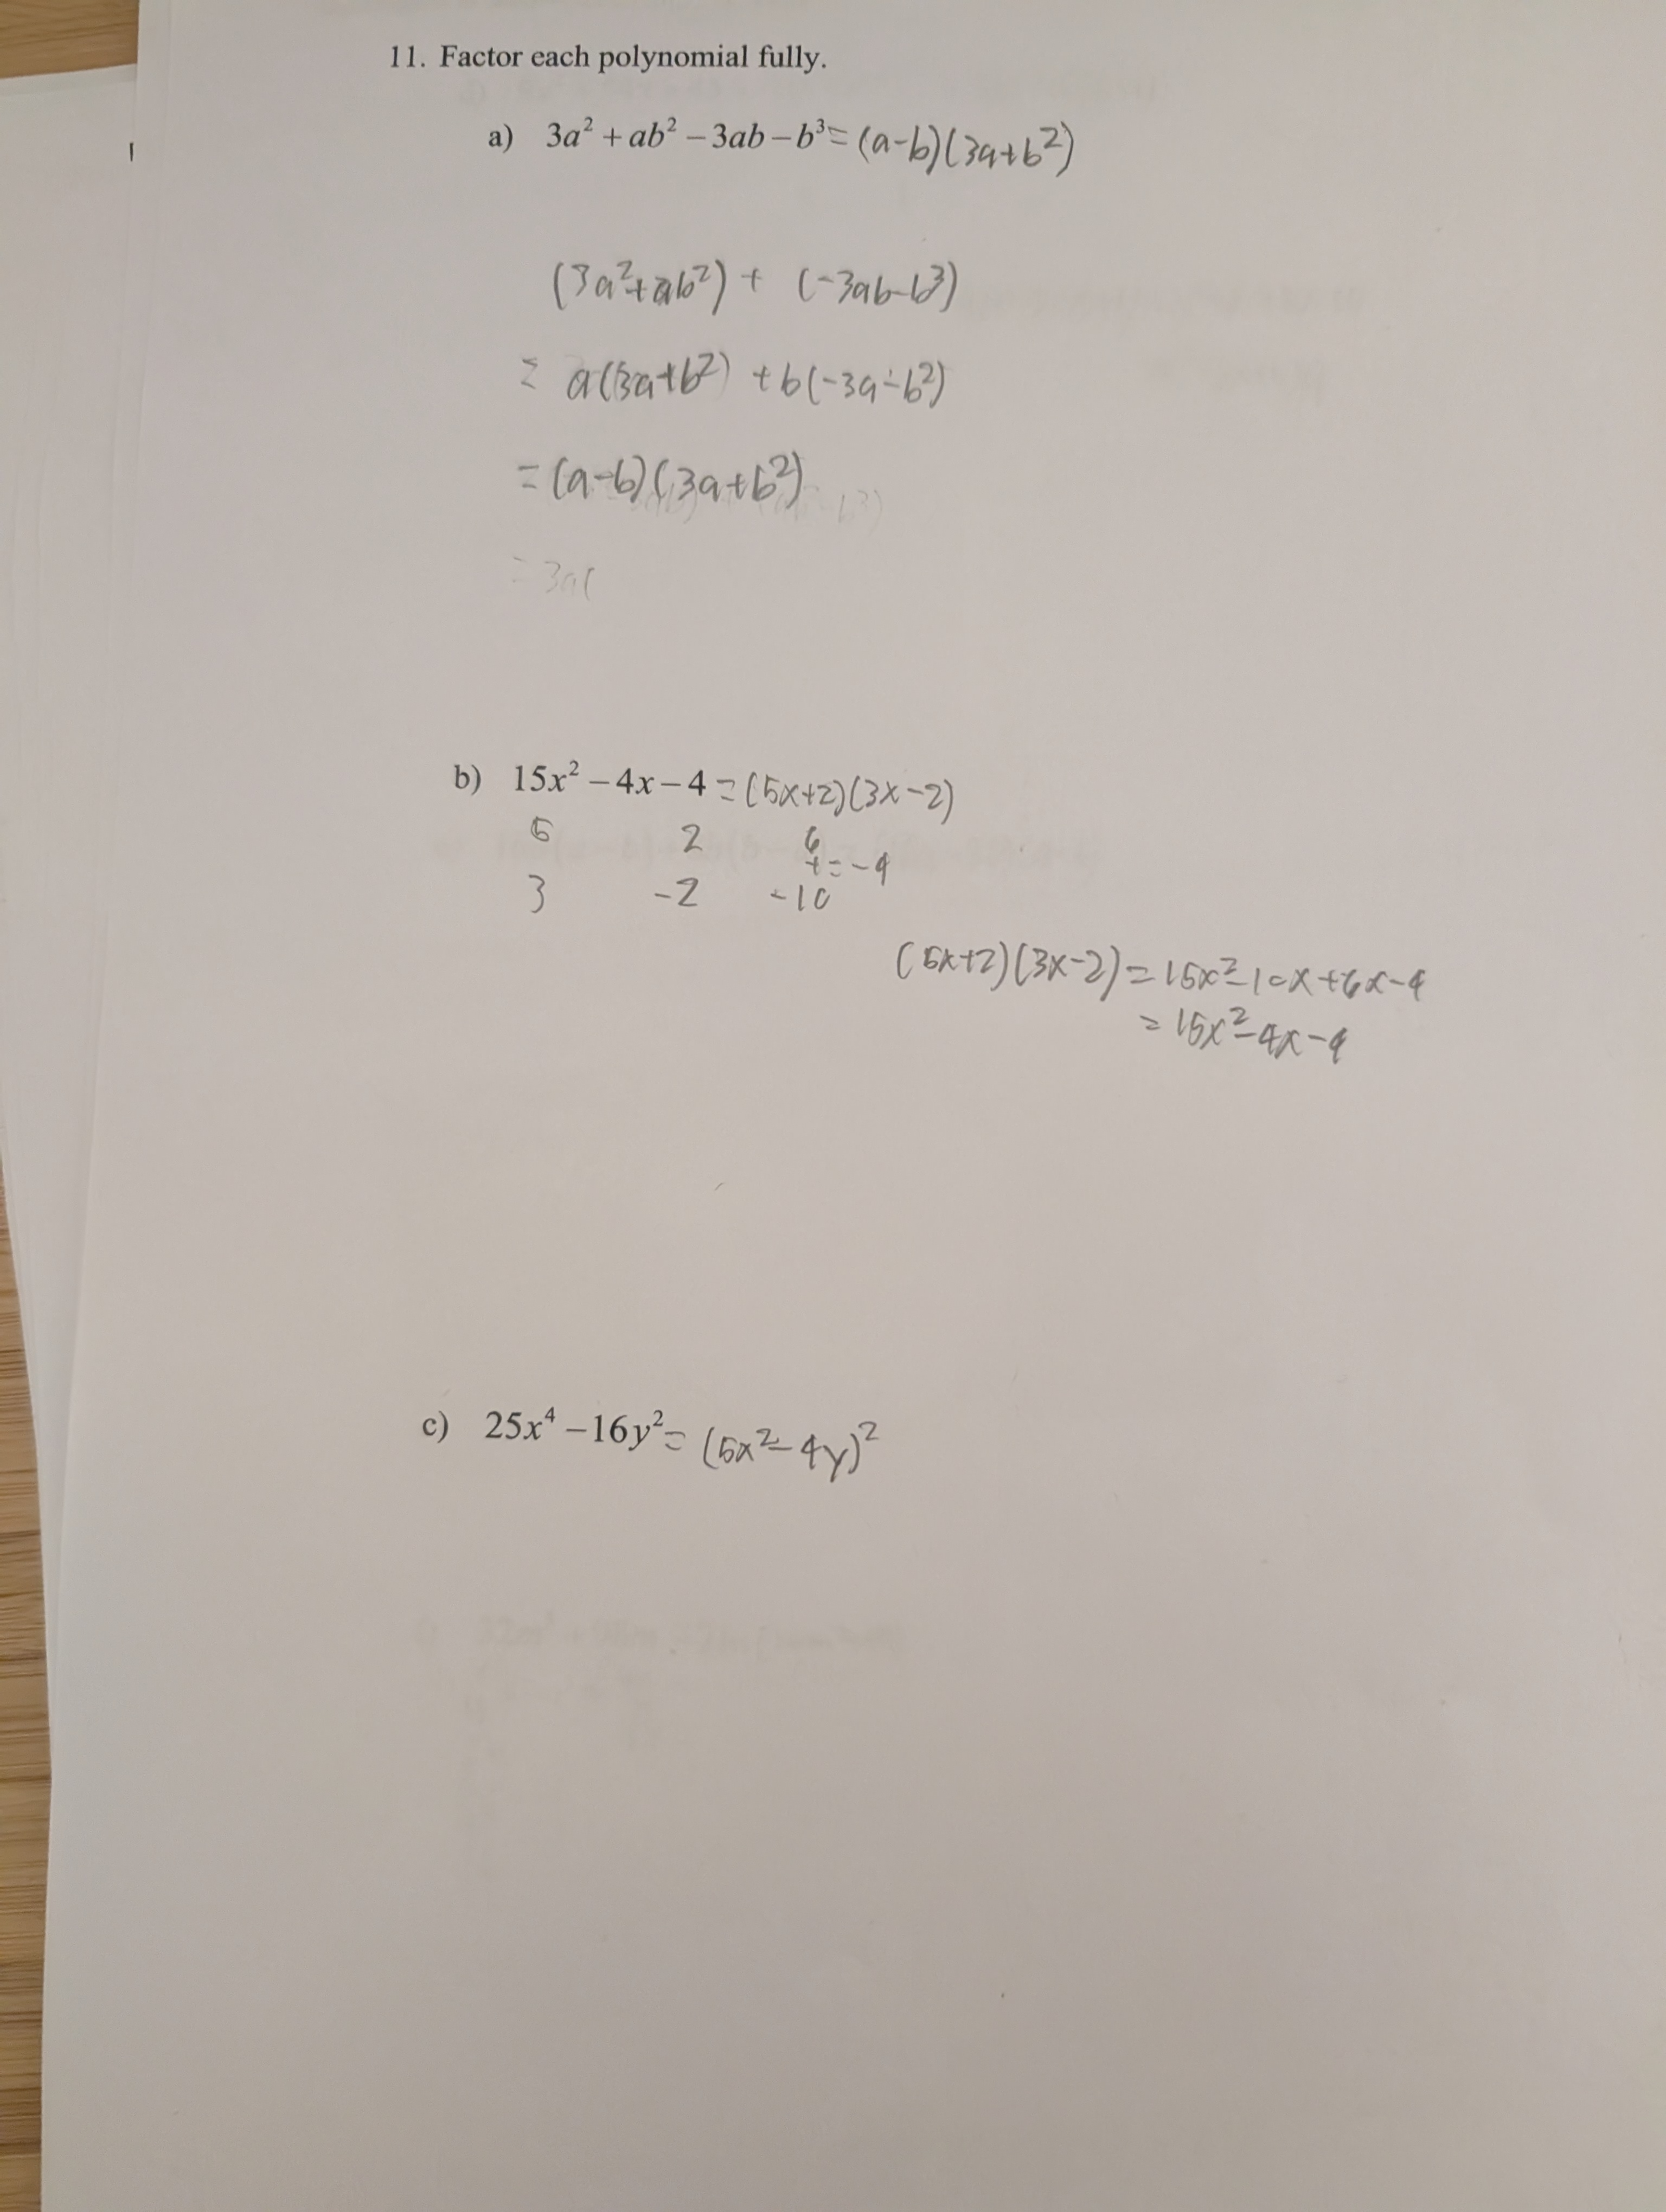 11. Factor each polynomial fully.
a) 3a² + ab² – 3ab – b³ = (a-b)(3a+b²)
(3a²+ab²) + (-3ab-b³)
= a(3a+b²) + b(-3a-b²)
= (a-b)(3a+b²)
= 3a(
b) 15x² – 4x – 4 = (5x+2)(3x-2)
5 2 6
+ = -4
3 -2 -10
(5x+2)(3x-2) = 15x²-10x+6x-4
= 15x²-4x-4
c) 25x⁴ – 16y² = (5x²-4y)²